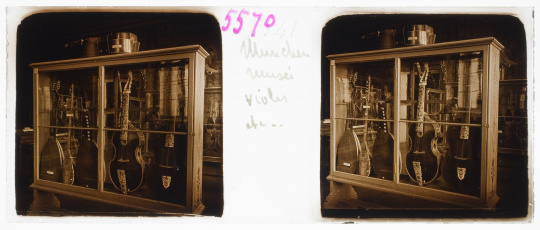 5570
Munchen
musée
violes
etc...